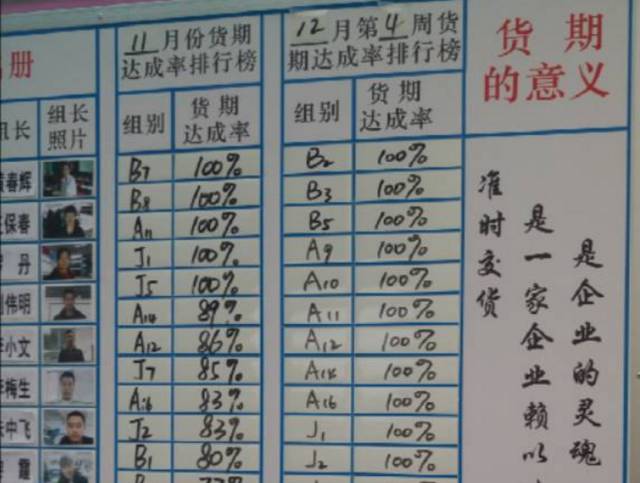 册
组长
组长
照片
春辉
保春
丹
伟明
小文
梅生
中飞
霞
11月份货期
达成率排行榜
组别
货期
达成率
B7 100%
B8 100%
A11 100%
J1 100%
J5 100%
A14 89%
A12 86%
J7 85%
A16 83%
J2 83%
B1 80%
12月第4周货
期达成率排行榜
组别
货期
达成率
B2 100%
B3 100%
B5 100%
A9 100%
A10 100%
A11 100%
A12 100%
A14 100%
A16 100%
J1 100%
J2 100%
100%
货期
的意义
准时交货
是一家企业赖以
是企业的灵魂